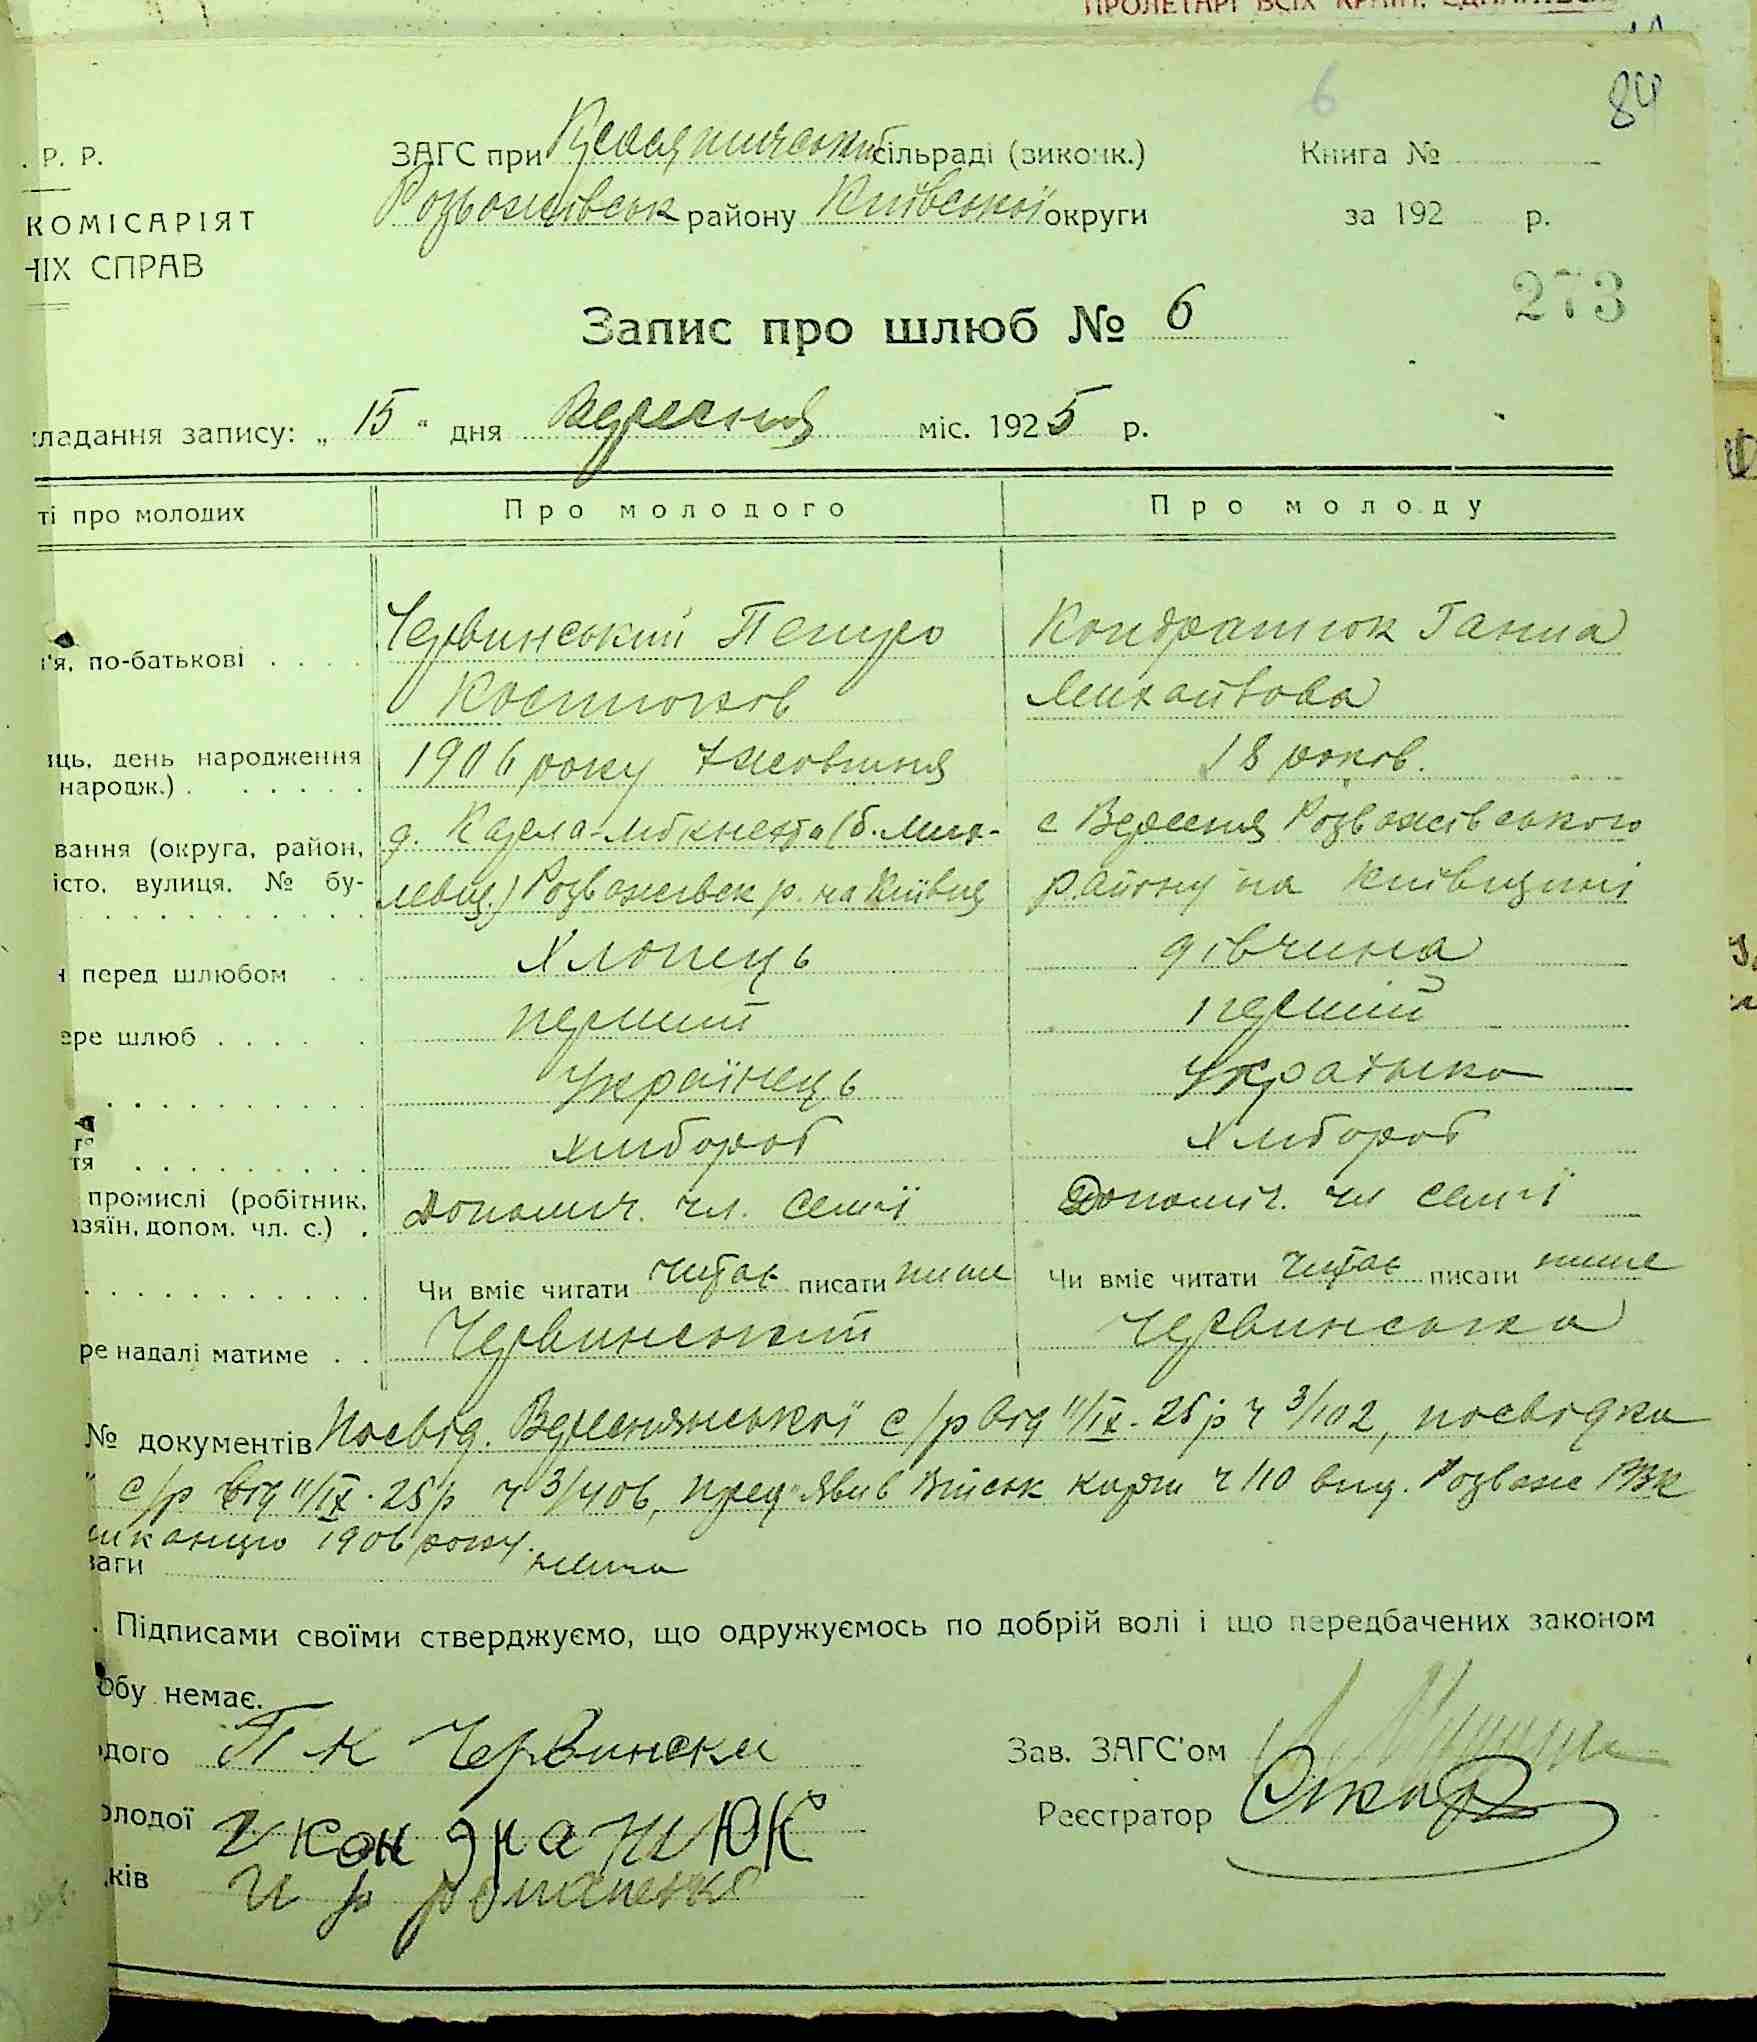 ПРОЛЕТАРІ ВСІХ КРАЇН, ЄДНАЙТЕСЬ
6
84
Р. Р.
ЗАГС при сільраді (виконк.)
Книга №
КОМІСАРІЯТ
Розважівськ району Київської округи
за 192 р.
НІХ СПРАВ
273
Запис про шлюб № 6
кладання запису: „ 15 “ дня Вересня міс. 1925 р.
ті про молодих
Про молодого
Про молоду
я, по-батькові
Червинський Петро
Костюков
Кондратюк Ганна
Михайлова
день народження
народж.)
1906 року Жовтня
18 років.
вання (округа, район,
істо, вулиця, № бу-
Розважівск р. на Київщ
с Вересня Розважівського
району на Київщині
перед шлюбом
Хлопець
дівчина
ере шлюб
перший
перший
Українець
Українка
тя
хлібороб
хлібороб
промислі (робітник,
азяїн, допом. чл. с.)
Допоміч. чл. семї
Допоміч. чл семї
Чи вміє читати читає писати пише
Чи вміє читати читає писати пише
ре надалі матиме
Червинський
Червинська
№ документів Посвід. Вереснянської с/р від 11/IX-25 р ч 3/102, посвідка
с/р від 11/IX-25 р ч 3/406, пред'явив Військ карт ч 110 вид. Розваж РВК
1906 року
ваги нема
Підписами своїми стверджуємо, що одружуємось по добрій волі і що передбачених законом
обу немає.
дого П К Червински
Зав. ЗАГС'ом
олодої Г Кондратюк
Реєстратор
ків Романенко